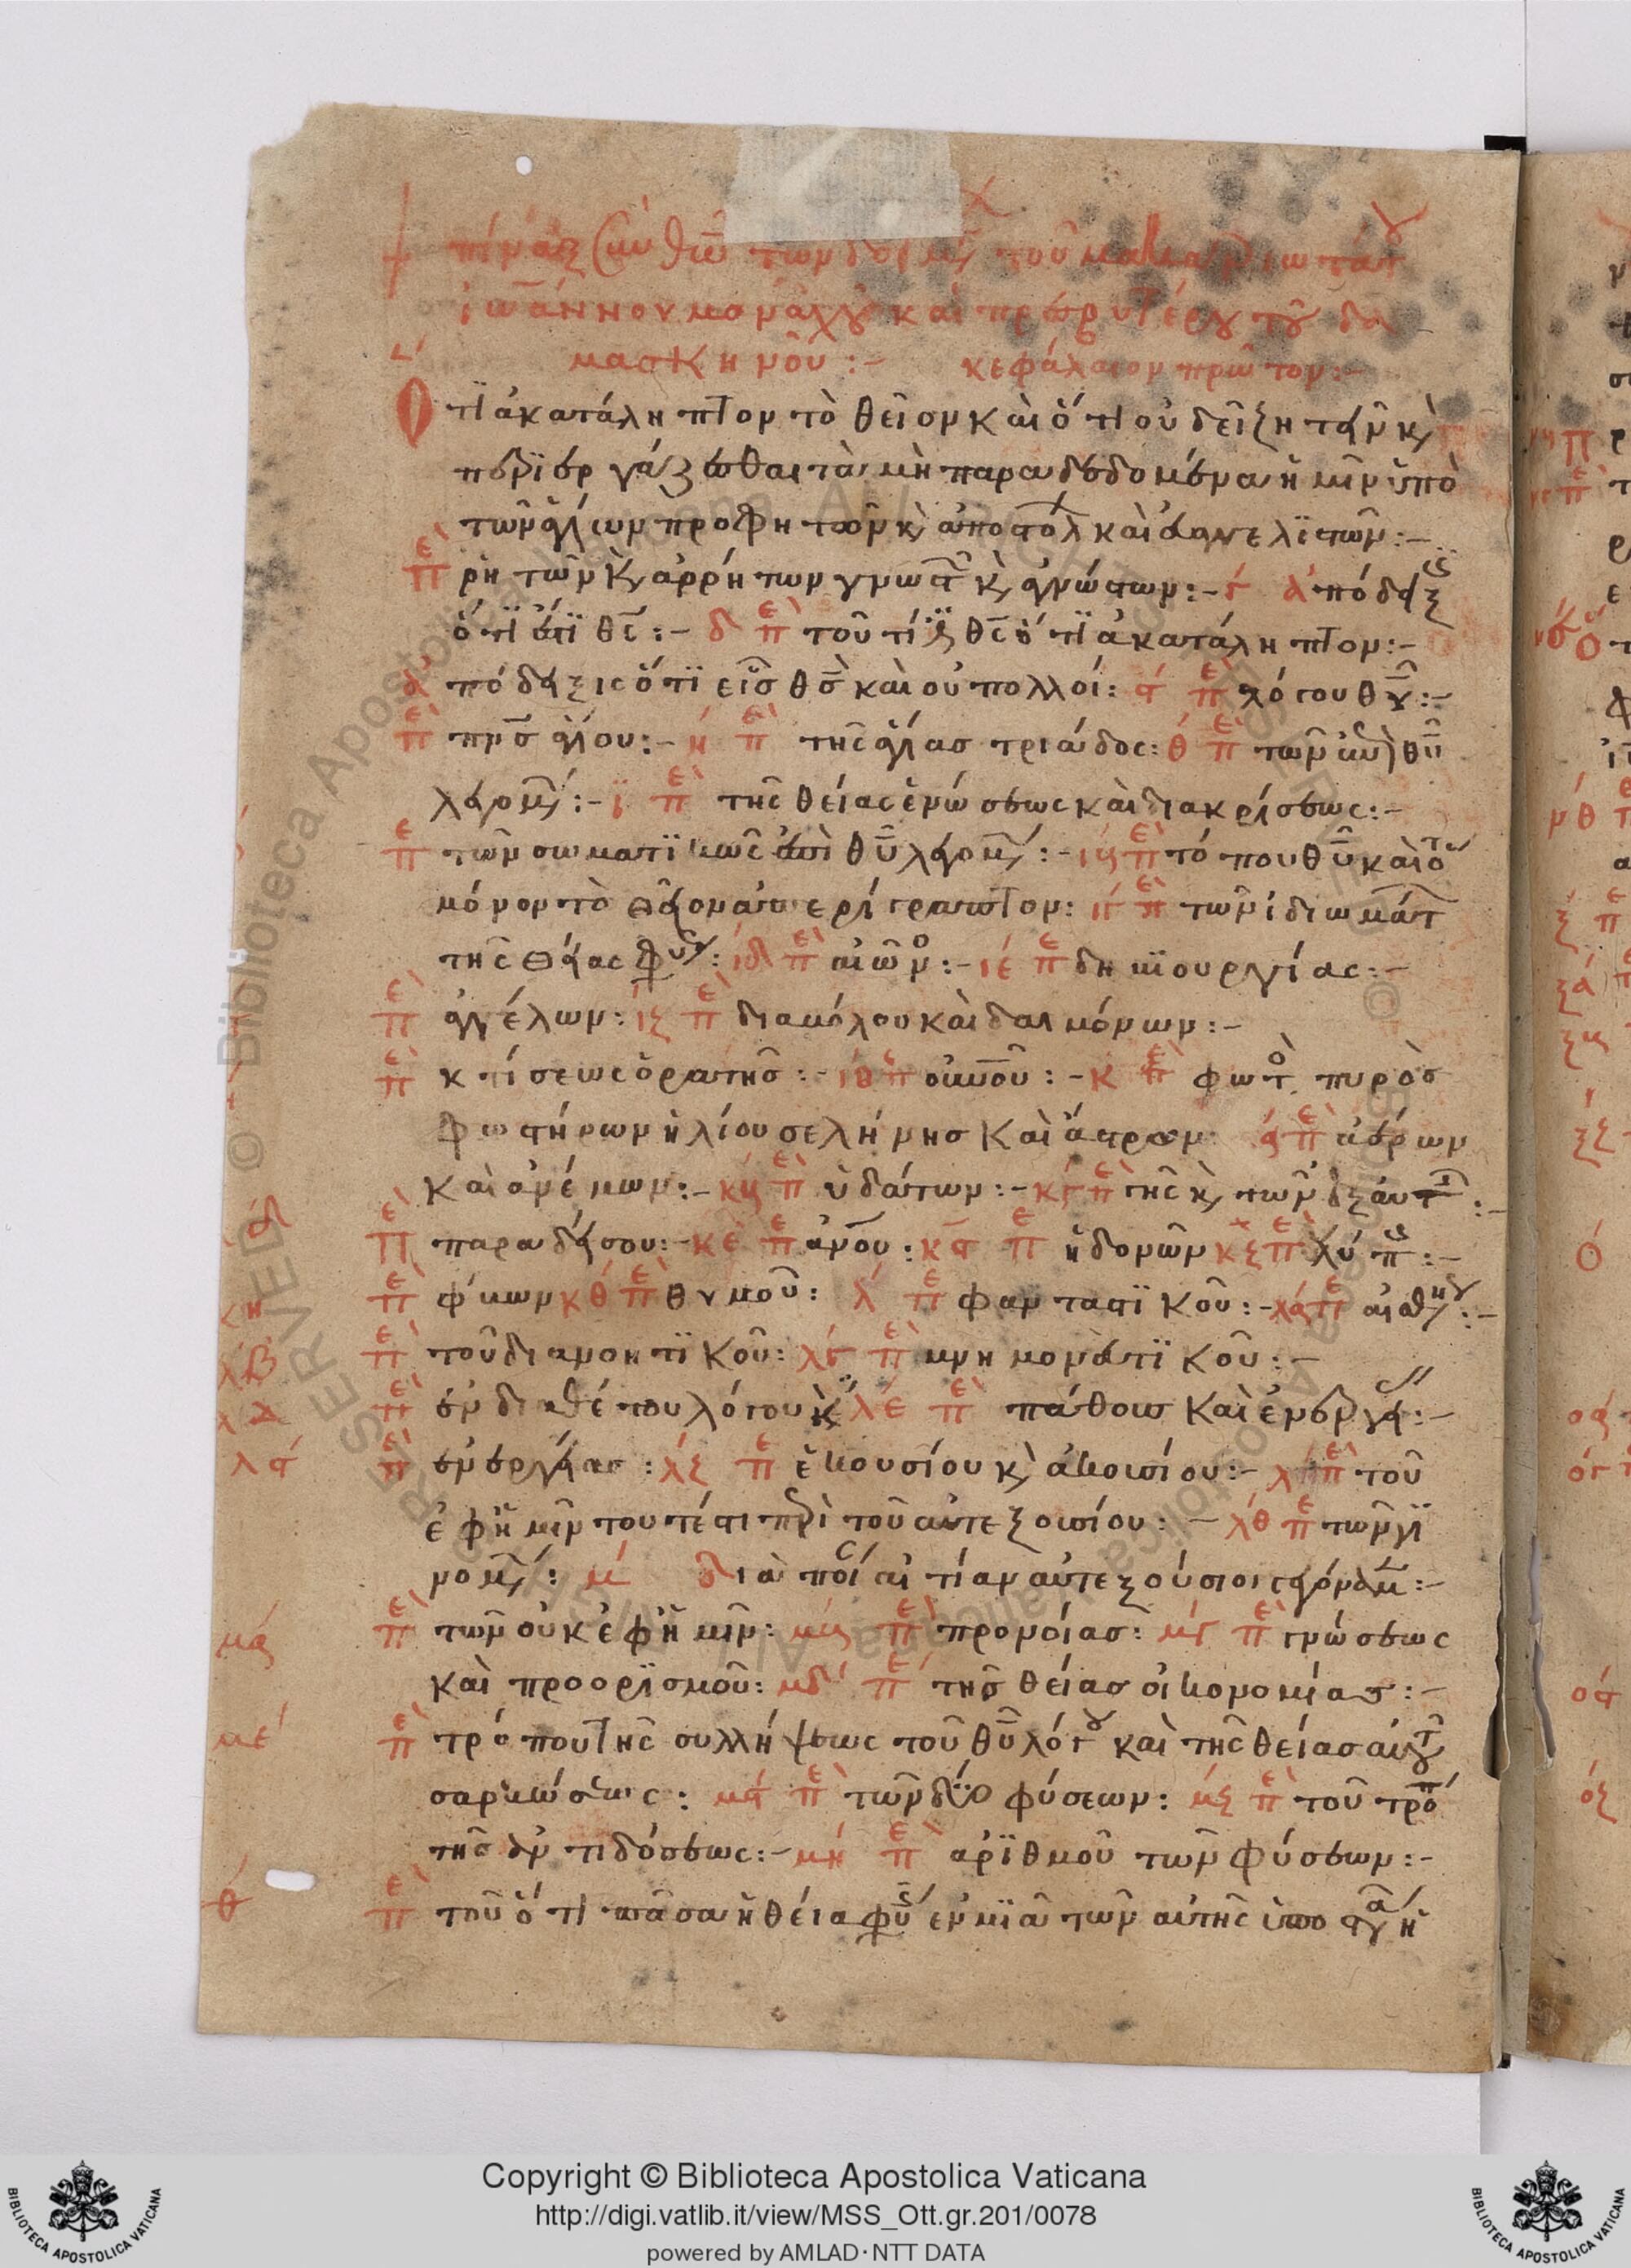 πίναξ σὺν θεῶ τῶν δογμ τοῦ μακαριωτάτου
ἰωάννου μοναχοῦ καὶ πρεσβυτέρου τοῦ δα
μασκηνοῦ :- κεφάλαιον πρῶτον:-
Ὅτι ἀκατάληπτον τὸ θεῖον καὶ ὅτι οὐ δεῖ ζητεῖν κὶ
περιεργάζεσθαι τὰ μὴ παραδεδομένα ἡμῖν ὑπὸ
τῶν ἁγίων προφητῶν κὶ ἀποστόλ καὶ εὐαγγελϊστῶν:-
π ε ρητῶν κὶ ἀρρήτων γνωστ κὶ ἀγνώστων:- γ ἀπόδειξ
ὅτι ἐστϊ θς :- δ π ε τοῦ τί ἐστι θς ὅτϊ ἀκατάληπτον:-
ἀπόδειξις ὅτϊ εἷς θς καὶ οὐ πολλοί: ϛ π ε λόγου θυ:-
π ε πνς ἁγίου:- η π ε τῆς ἁγίας τριάδος: θ π ε τῶν ἐπὶ θυ
λεγομ:- ι π ε τῆς θείας ἑνώσεως καὶ διακρίσεως:-
π ε τῶν σωματϊκῶς ἐπὶ θυ λεγομ:- ιβ π ε τόπου θυ καὶ ὅτ
μόνον τὸ θεῖον ἀπερίγραπτον: ιγ π ε τῶν ἰδιωμάτ
τῆς θείας φύσ: ιδ π ε αἰῶν:- ιε π ε δημϊουργίας:-
π ε ἀγγέλων: ιζ π ε διαβόλου καὶ δαιμόνων:-
π ε κτίσεως ὁρατῆς:- ιθ π ε οὐνοῦ:- κ π ε φωτὸ πυρὸς
φωστήρων ἡλίου σελήνης καὶ ἄστρων κα π ε ἀέρων
καὶ ἀνέμων:- κβ π ε ὑδάτων:- κγ π ε γῆς κὶ τῶν ἐξ αὐτ:-
π ε παραδείσου:- κε π ε ἀνου: κϛ π ε ἡδονῶν κζ π ε λύπ:-
π ε φόβων κθ π ε θυμοῦ: λ π ε φανταστϊκοῦ:- λα π ε αἰσθήσ:-
π ε τοῦ διανοητϊκοῦ: λγ π ε μνημονευτϊκοῦ:-
π ε ἐνδιαθέτου λόγου κὶ λε π ε πάθους καὶ ἐνεργεί:-
π ε ἐνεργείας: λζ π ε ἑκουσίου κὶ ἀκουσίου:- λη π ε τοῦ
ἐφ ἡμῖν τουτέστι περὶ τοῦ αὐτεξουσίου:- λθ π ε τῶν γϊ
νομ: μ διὰ ποί αἰτίαν αὐτεξούσιοι γεγόναμ:-
π ε τῶν οὐκ ἐφ ἡμῖν: μβ π ε προνοίας: μγ π ε γνώσεως
καὶ προορϊσμοῦ: μδ π ε τῆς θείας οἰκονομίας:-
π ε τρόπου τῆς συλλήψεως τοῦ θυ λόγου καὶ τῆς θείας αὐτοῦ
σαρκώσεως: μϛ π ε τῶν δύο φύσεων: μζ π ε τοῦ τρόπ
τῆς ἀντιδόσεως:- μη π ε ἀρϊθμοῦ τῶν φύσεων:-
π ε τοῦ ὅτι πᾶσα ἡ θεία φύσ ἐν μϊᾶ τῶν αὐτῆς ὑποστά ἡ
Copyright © Biblioteca Apostolica Vaticana
http://digi.vatlib.it/view/MSS_Ott.gr.201/0078
powered by AMLAD·NTT DATA